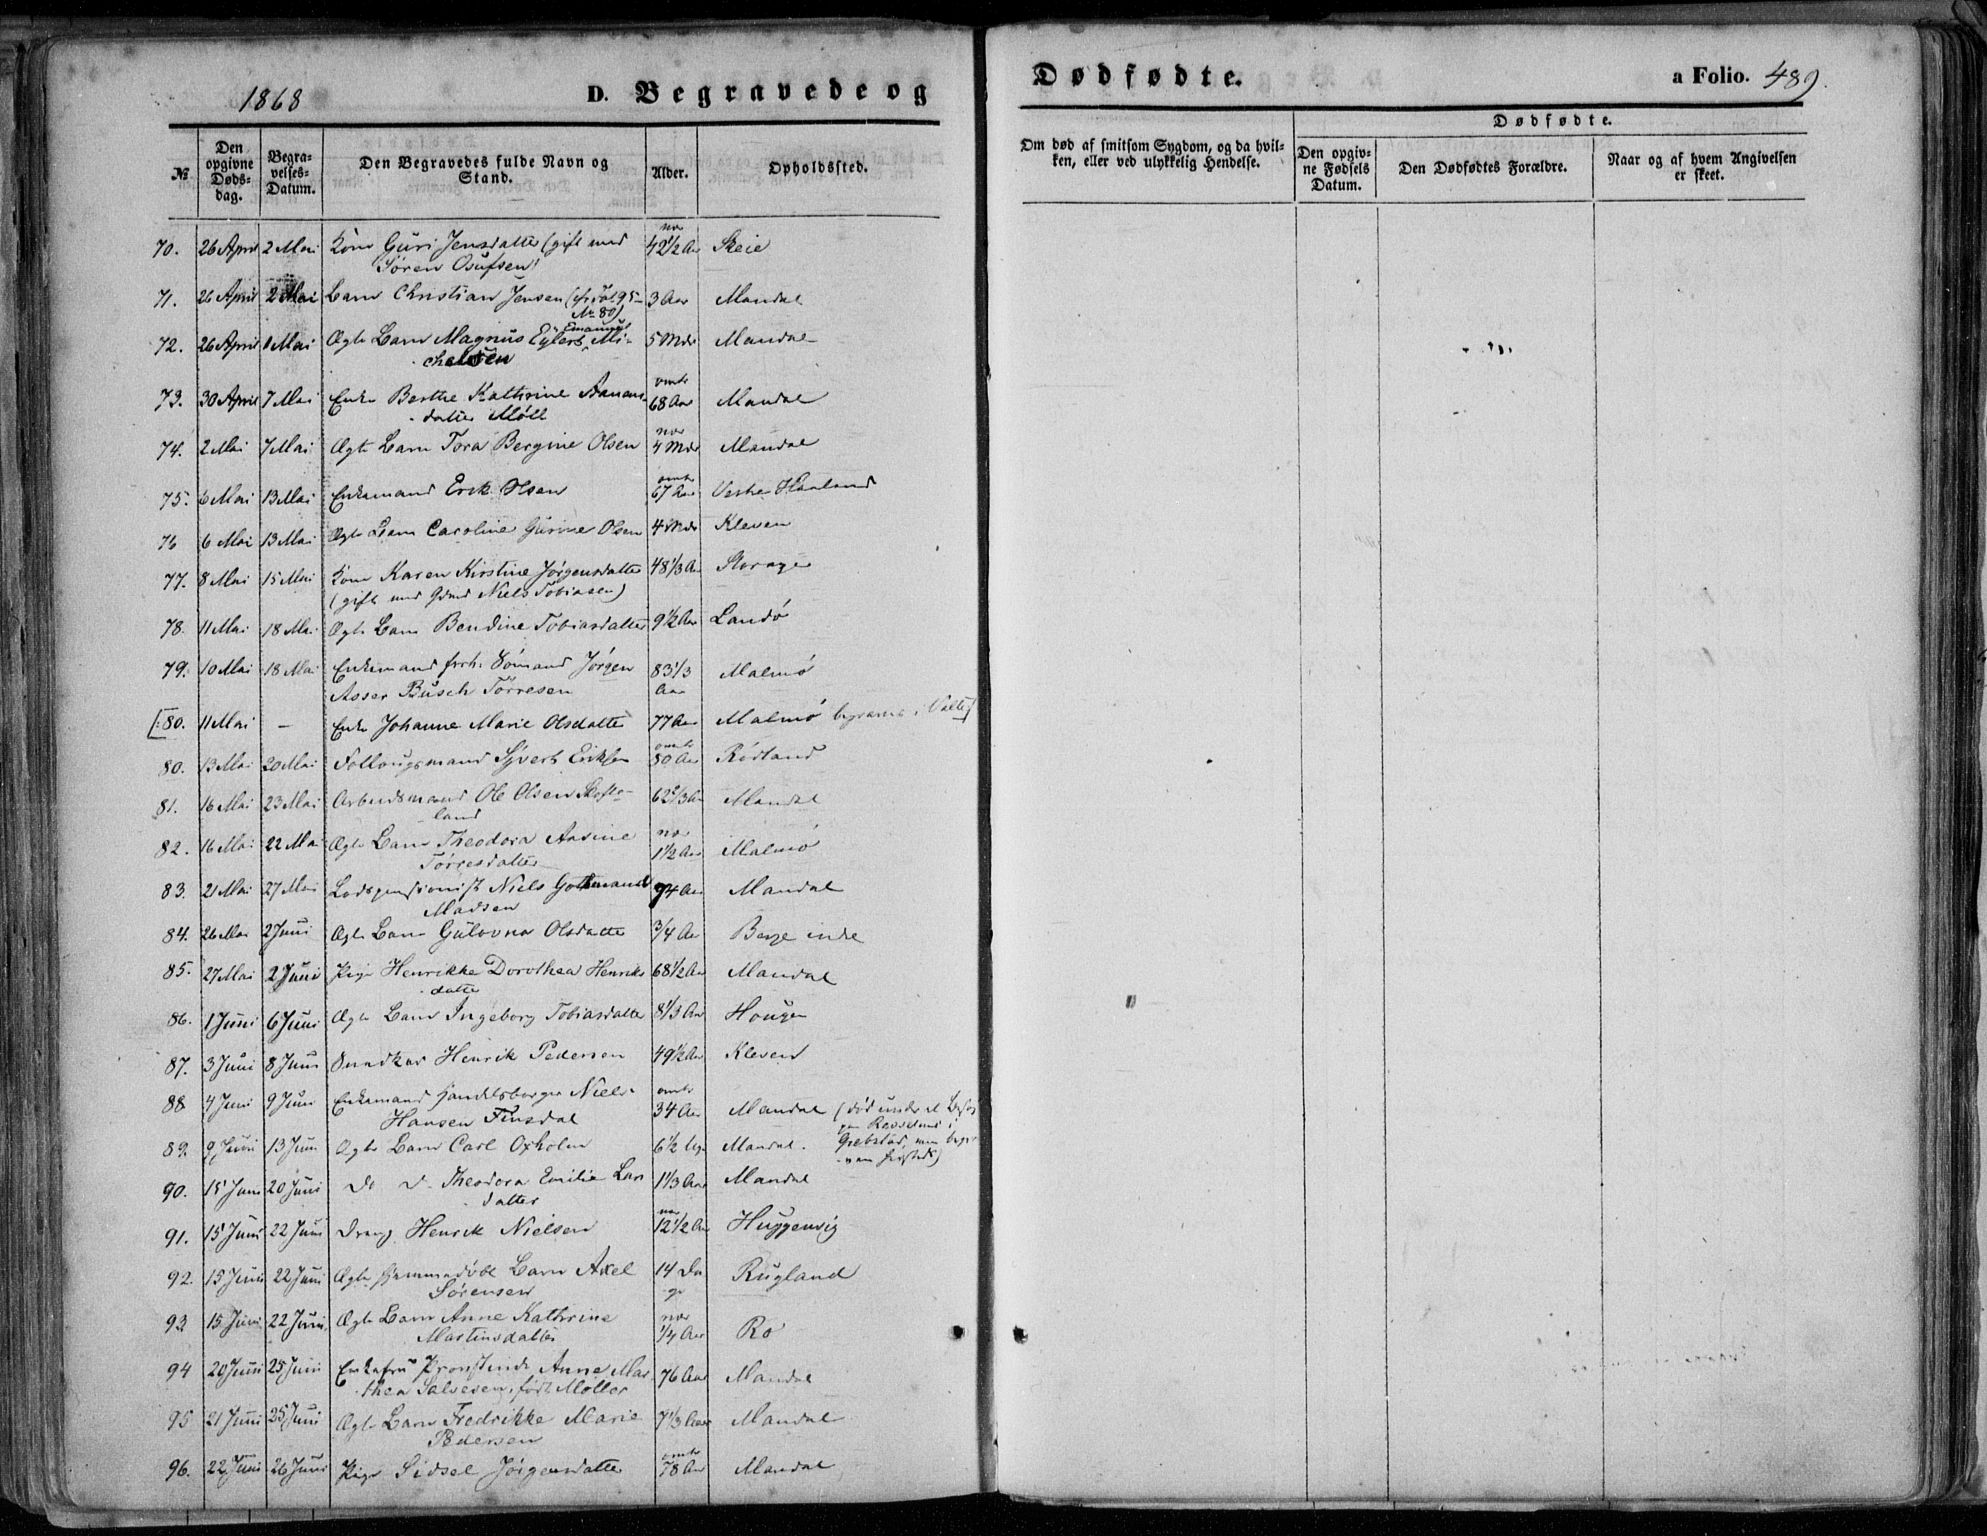 1868
D. Begravede og
Dødfødte.
a Folio. 489.
№
Den opgivne Døds-dag.
Begra-velses-Datum.
Den Begravedes fulde Navn og Stand.
Alder.
Opholdssted.
Om død af smitsom Sygdom, og da hvil-
ken, eller ved ulykkelig Hendelse.
Dødfødte.
Den opgiv-ne Fødsels Datum.
Den Dødfødtes Forældre.
Naar og af hvem Angivelsen er skeet.
70. 26 April 2 Mai Kone Guri Jensdatter (gift med nær 42 1/2 Aar Skeie
Søren Osufsen)
71. 26 April 2 Mai Barn Christian Jensen 3 Aar Mandal
No 80)
72. 26 April 1 Mai Ægte Barn Magnus Eylert Emanuel Mi- 5 Mdr Mandal
chelsen
73. 30 April 7 Mai Enke Berthe Kathrine Aanens- omtr 68 Aar Mandal
datter Møll
74. 2 Mai 7 Mai Ægte Barn Tora Bergine Olsen nær 4 Mdr Mandal
75. 6 Mai 13 Mai Enkemand Erik Olsen omtr 67 Aar Vestre Haaland
76 6 Mai 13 Mai Ægte Barn Caroline Gurine Olsen 4 Mdr Kleven
77. 8 Mai 15 Mai Kone Karen Kirstine Jørgensdatter 48 1/3 Aar Storager
(gift med Gdmd Niels Tobiasen)
78. 11 Mai 18 Mai Ægte Barn Bendine Tobiasdatter 9 1/2 Aar Landø
79. 10 Mai 18 Mai Enkemand forh. Sømand Jørgen 83 1/3 Malmø
Asser Busch Torresen Aar
[80. 11 Mai - Enke Johanne Marie Olsdatter 77 Aar Malmø begravet i Valle]
80. 13 Mai 20 Mai Follougsmand Syvert Eriksen omtr 80 Aar Rødland
81. 16 Mai 23 Mai Arbeidsmand Ole Olsen Skofte- 62 2/3 Aar Mandal
land
82. 16 Mai 22 Mai Ægte Barn Theodora Aasine nær 1 1/2 Aar Malmø
Torresdatter
83. 21 Mai 27 Mai Lodspensionist Niels Gottmand 74 Aar Mandal
Madsen
84. 26 Mai 2 Juni Ægte Barn Gulovna Olsdatter 3/4 Aar Berge indre
85. 27 Mai 2 Juni Pige Henrikke Dorothea Henriks 68 1/2 Aar Mandal
datter
86. 1 Juni 6 Juni Ægte Barn Ingeborg Tobiasdatter 8 1/3 Aar Hougen
87. 3 Juni 8 Juni Snedker Henrik Pedersen 49 1/2 Aar Kleven
88 4 Juni 9 Juni Enkemand Handelsborger Niels omtr 34 Aar Mandal (død under et
Hansen Finsdal
89. 9 Juni 13 Juni Ægte Barn Carl Oxholm 6 1/2 Uge Mandal.
90. 15 Juni 20 Juni Do Do Theodora Emilie Lars 1 1/3 Aar Mandal
datter
91. 15 Juni 22 Juni Dreng Henrik Nielsen nær 12 1/2 Aar Huggenvig
92. 15 Juni 22 Juni Ægte hjemmedøbt Barn Axel 14 Da Rugland
Sørensen ge
93. 15 Juni 22 Juni Ægte Barn Anne Kathrine nær 1/4 Aar Ro
Martinsdatter
94 20 Juni 25 Juni Enkefru Provstinde Anne Mar 76 Aar Mandal
thea Salvesen, født Møller
95 21 Juni 25 Juni Ægte Barn Fredrikke Marie 7 1/3 Aar Mandal
Pedersen
96. 22 Juni 26 Juni Pige Sidsel Jørgensdatter omtr 78 Aar Mandal